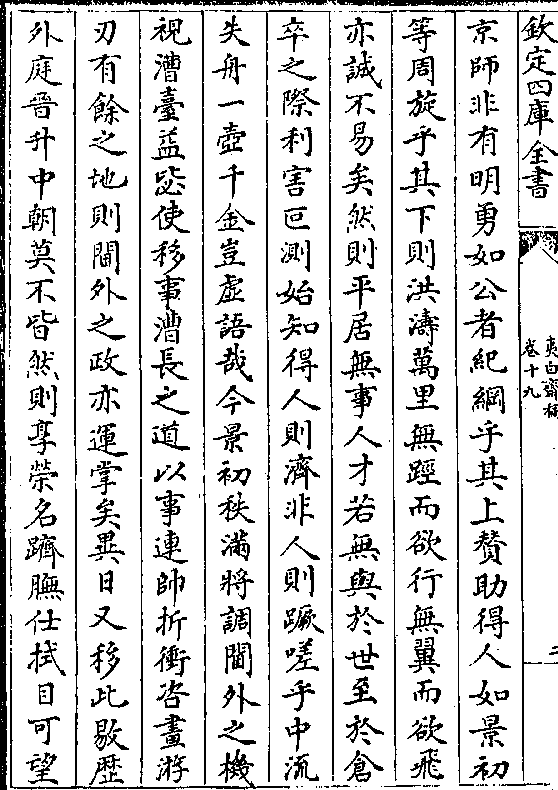 欽定四庫全書
夷白齋稿
卷十九
二
京師非有明勇如公者紀綱乎其上贊助得人如景初
等周旋乎其下則洪濤萬里無踁而欲行無翼而欲飛
亦誠不易矣然則平居無事人才若無與於世至於倉
卒之際利害叵測始知得人則濟非人則蹶嗟乎中流
失舟一壺千金豈虛語哉今景初秩滿將調閫外之機
視漕臺益毖使移事漕長之道以事連帥折衝咨畫游
刃有餘之地則閫外之政亦運掌矣異日又移此敭歴
外庭晉升中朝莫不皆然則享榮名躋膴仕拭目可望